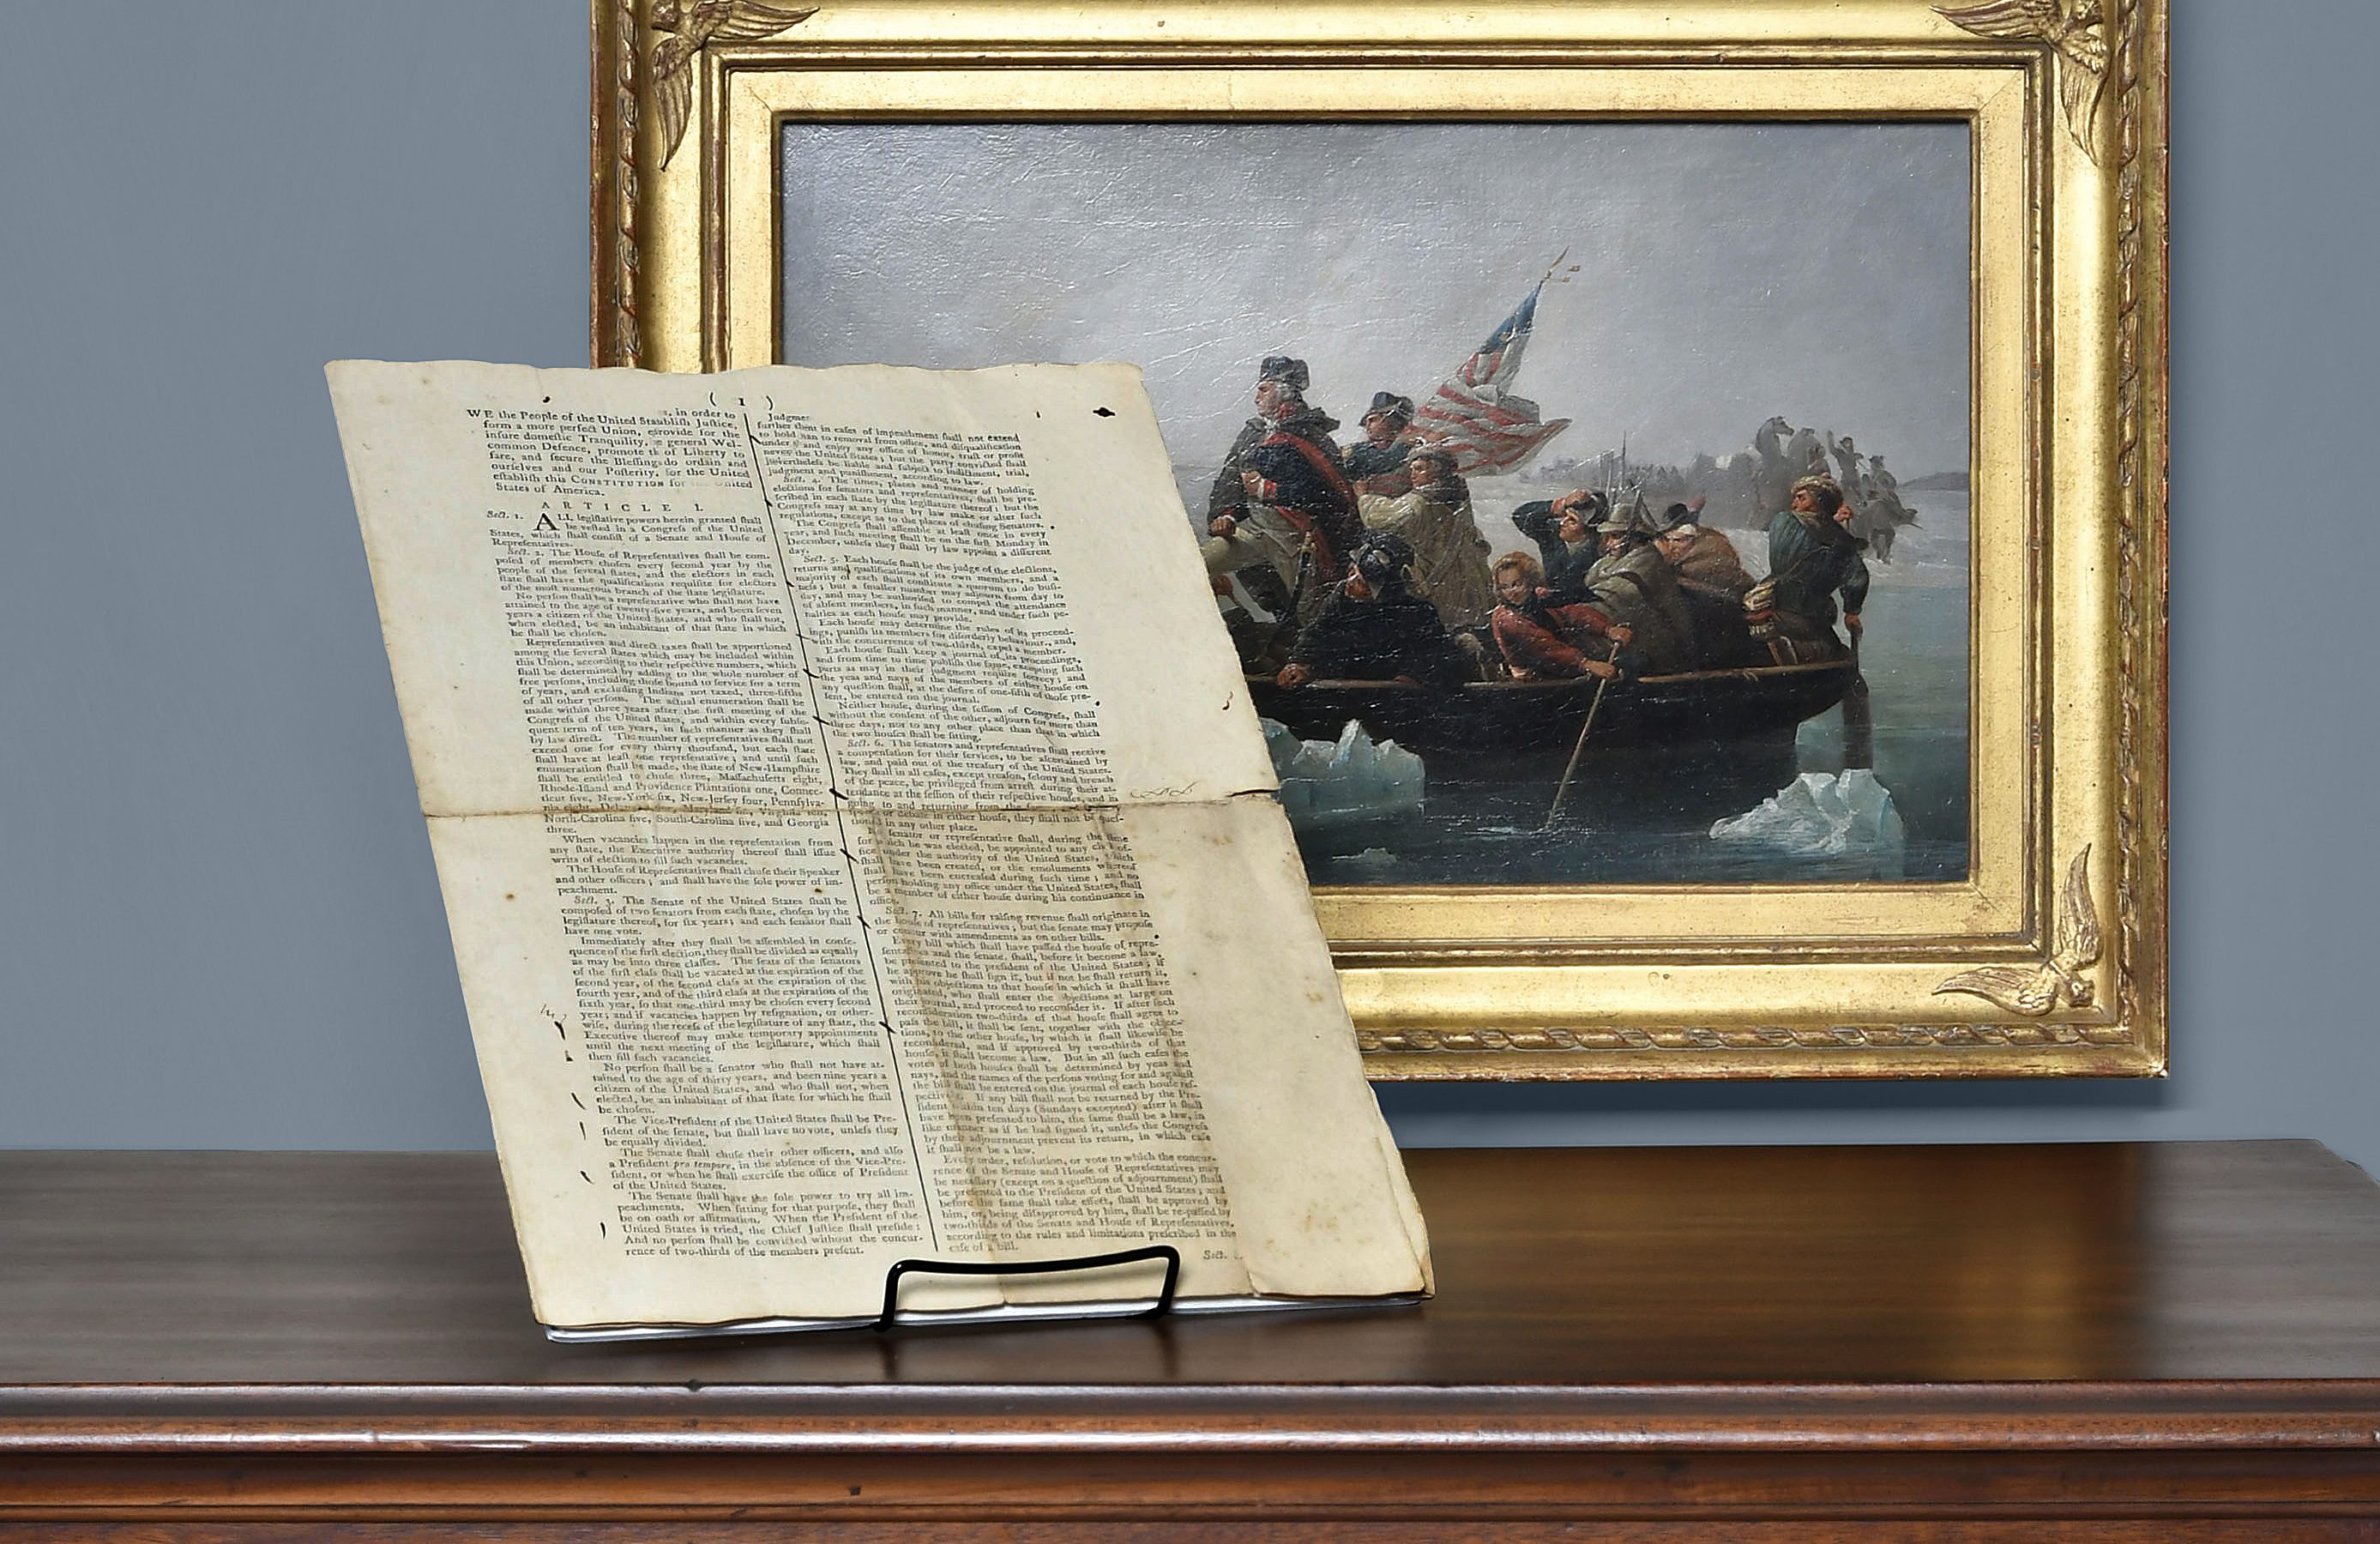 ( 1 )
WE the People of the United Sta
s, in order to
form a more perfect Union, e
bliſh Juſtice,
inſure domeſtic Tranquility,
rovide for the
common Defence, promote th
general Wel-
fare, and ſecure the Bleſſings
of Liberty to
ourſelves and our Poſterity,
do ordain and
eſtabliſh this CONSTITUTION for
United
States of America.
ARTICLE I.
Sect. 1. ALL legiſlative powers herein granted ſhall
be veſted in a Congreſs of the United
States, which ſhall conſiſt of a Senate and Houſe of
Repreſentatives.
Sect. 2. The Houſe of Repreſentatives ſhall be com-
poſed of members choſen every ſecond year by the
people of the ſeveral ſtates, and the electors in each
ſtate ſhall have the qualifications requiſite for electors
of the moſt numerous branch of the ſtate legiſlature.
No perſon ſhall be a repreſentative who ſhall not have
attained to the age of twenty-five years, and been ſeven
years a citizen of the United States, and who ſhall not,
when elected, be an inhabitant of that ſtate in which
he ſhall be choſen.
Repreſentatives and direct taxes ſhall be apportioned
among the ſeveral ſtates which may be included within
this Union, according to their reſpective numbers, which
ſhall be determined by adding to the whole number of
free perſons, including thoſe bound to ſervice for a term
of years, and excluding Indians not taxed, three-fifths
of all other perſons. The actual enumeration ſhall be
made within three years after the firſt meeting of the
Congreſs of the United ſtates, and within every ſubſe-
quent term of ten years, in ſuch manner as they ſhall
by law direct. The number of repreſentatives ſhall not
exceed one for every thirty thouſand, but each ſtate
ſhall have at leaſt one repreſentative; and until ſuch
enumeration ſhall be made, the ſtate of New-Hampſhire
ſhall be entitled to chuſe three, Maſſachuſetts eight,
Rhode-Iſland and Providence Plantations one, Connec-
ticut five, New-York ſix, New-Jerſey four, Pennſylva-
nia eight, Delaware one, Maryland ſix, Virginia ten,
North-Carolina five, South-Carolina five, and Georgia
three.
When vacancies happen in the repreſentation from
any ſtate, the Executive authority thereof ſhall iſſue
writs of election to fill ſuch vacancies.
The Houſe of Repreſentatives ſhall chuſe their Speaker
and other officers; and ſhall have the ſole power of im-
peachment.
Sect. 3. The Senate of the United States ſhall be
compoſed of two ſenators from each ſtate, choſen by the
legiſlature thereof, for ſix years; and each ſenator ſhall
have one vote.
Immediately after they ſhall be aſſembled in conſe-
quence of the firſt election, they ſhall be divided as equally
as may be into three claſſes. The ſeats of the ſenators
of the firſt claſs ſhall be vacated at the expiration of the
ſecond year, of the ſecond claſs at the expiration of the
fourth year, and of the third claſs at the expiration of the
ſixth year, ſo that one-third may be choſen every ſecond
year; and if vacancies happen by reſignation, or other-
wiſe, during the receſs of the legiſlature of any ſtate, the
Executive thereof may make temporary appointments
until the next meeting of the legiſlature, which ſhall
then fill ſuch vacancies.
No perſon ſhall be a ſenator who ſhall not have at-
tained to the age of thirty years, and been nine years a
citizen of the United States, and who ſhall not, when
elected, be an inhabitant of that ſtate for which he ſhall
be choſen.
The Vice-Preſident of the United States ſhall be Pre-
ſident of the ſenate, but ſhall have no vote, unleſs they
be equally divided.
The Senate ſhall chuſe their other officers, and alſo
a Preſident pro tempore, in the abſence of the Vice-Pre-
ſident, or when he ſhall exerciſe the office of Preſident
of the United States.
The Senate ſhall have the ſole power to try all im-
peachments. When ſitting for that purpoſe, they ſhall
be on oath or affirmation. When the Preſident of the
United States is tried, the Chief Juſtice ſhall preſide:
And no perſon ſhall be convicted without the concur-
rence of two-thirds of the members preſent.
Judgme
in caſes of impeachment ſhall not extend
further than to removal from office, and diſqualification
to hold and enjoy any office of honor, truſt or profit
under the United States; but the party convicted ſhall
nevertheleſs be liable and ſubject to indictment, trial,
judgment and puniſhment, according to law.
Sect. 4. The times, places and manner of holding
elections for ſenators and repreſentatives, ſhall be pre-
ſcribed in each ſtate by the legiſlature thereof; but the
Congreſs may at any time by law make or alter ſuch
regulations, except as to the places of chuſing Senators.
The Congreſs ſhall aſſemble at leaſt once in every
year, and ſuch meeting ſhall be on the firſt Monday in
December, unleſs they ſhall by law appoint a different
day.
Sect. 5. Each houſe ſhall be the judge of the elections,
returns and qualifications of its own members, and a
majority of each ſhall conſtitute a quorum to do buſi-
neſs; but a ſmaller number may adjourn from day to
day, and may be authoriſed to compel the attendance
of abſent members, in ſuch manner, and under ſuch pe-
nalties as each houſe may provide.
Each houſe may determine the rules of its proceed-
ings, puniſh its members for diſorderly behaviour, and,
with the concurrence of two-thirds, expel a member.
Each houſe ſhall keep a journal of its proceedings,
and from time to time publiſh the ſame, excepting ſuch
parts as may in their judgment require ſecrecy; and
the yeas and nays of the members of either houſe on
any queſtion ſhall, at the deſire of one-fifth of thoſe pre-
ſent, be entered on the journal.
Neither houſe, during the ſeſſion of Congreſs, ſhall
without the conſent of the other, adjourn for more than
three days, nor to any other place than that in which
the two houſes ſhall be ſitting.
Sect. 6. The ſenators and repreſentatives ſhall receive
a compenſation for their ſervices, to be aſcertained by
law, and paid out of the treaſury of the United States.
They ſhall in all caſes, except treaſon, felony and breach
of the peace, be privileged from arreſt during their at-
tendance at the ſeſſion of their reſpective houſes, and in
going to and returning from the
ſpeech or debate in either houſe, they ſhall not be queſ-
tioned in any other place.
ſenator or repreſentative ſhall, during the time
for which he was elected, be appointed to any civil of-
fice under the authority of the United States, which
ſhall have been created, or the emoluments whereof
ſhall have been encreaſed during ſuch time; and no
perſon holding any office under the United States, ſhall
be a member of either houſe during his continuance in
office.
Sect. 7. All bills for raiſing revenue ſhall originate in
the houſe of repreſentatives; but the ſenate may propoſe
or concur with amendments as on other bills.
Every bill which ſhall have paſſed the houſe of repre-
ſentatives and the ſenate, ſhall, before it become a law,
be preſented to the preſident of the United States; if
he approve he ſhall ſign it, but if not he ſhall return it,
with his objections to that houſe in which it ſhall have
originated, who ſhall enter the objections at large on
their journal, and proceed to reconſider it. If after ſuch
reconſideration two-thirds of that houſe ſhall agree to
paſs the bill, it ſhall be ſent, together with the objec-
tions, to the other houſe, by which it ſhall likewiſe be
reconſidered, and if approved by two-thirds of that
houſe, it ſhall become a law. But in all ſuch caſes the
votes of both houſes ſhall be determined by yeas and
nays, and the names of the perſons voting for and againſt
the bill ſhall be entered on the journal of each houſe reſ-
pectively. If any bill ſhall not be returned by the Pre-
ſident within ten days (Sundays excepted) after it ſhall
have been preſented to him, the ſame ſhall be a law, in
like manner as if he had ſigned it, unleſs the Congreſs
by their adjournment prevent its return, in which caſe
it ſhall not be a law.
Every order, reſolution, or vote to which the concur-
rence of the Senate and Houſe of Repreſentatives may
be neceſſary (except on a queſtion of adjournment) ſhall
be preſented to the Preſident of the United States; and
before the ſame ſhall take effect, ſhall be approved by
him, or, being diſapproved by him, ſhall be re-paſſed by
two-thirds of the Senate and Houſe of Repreſentatives,
according to the rules and limitations preſcribed in the
caſe of a bill.
Sect.